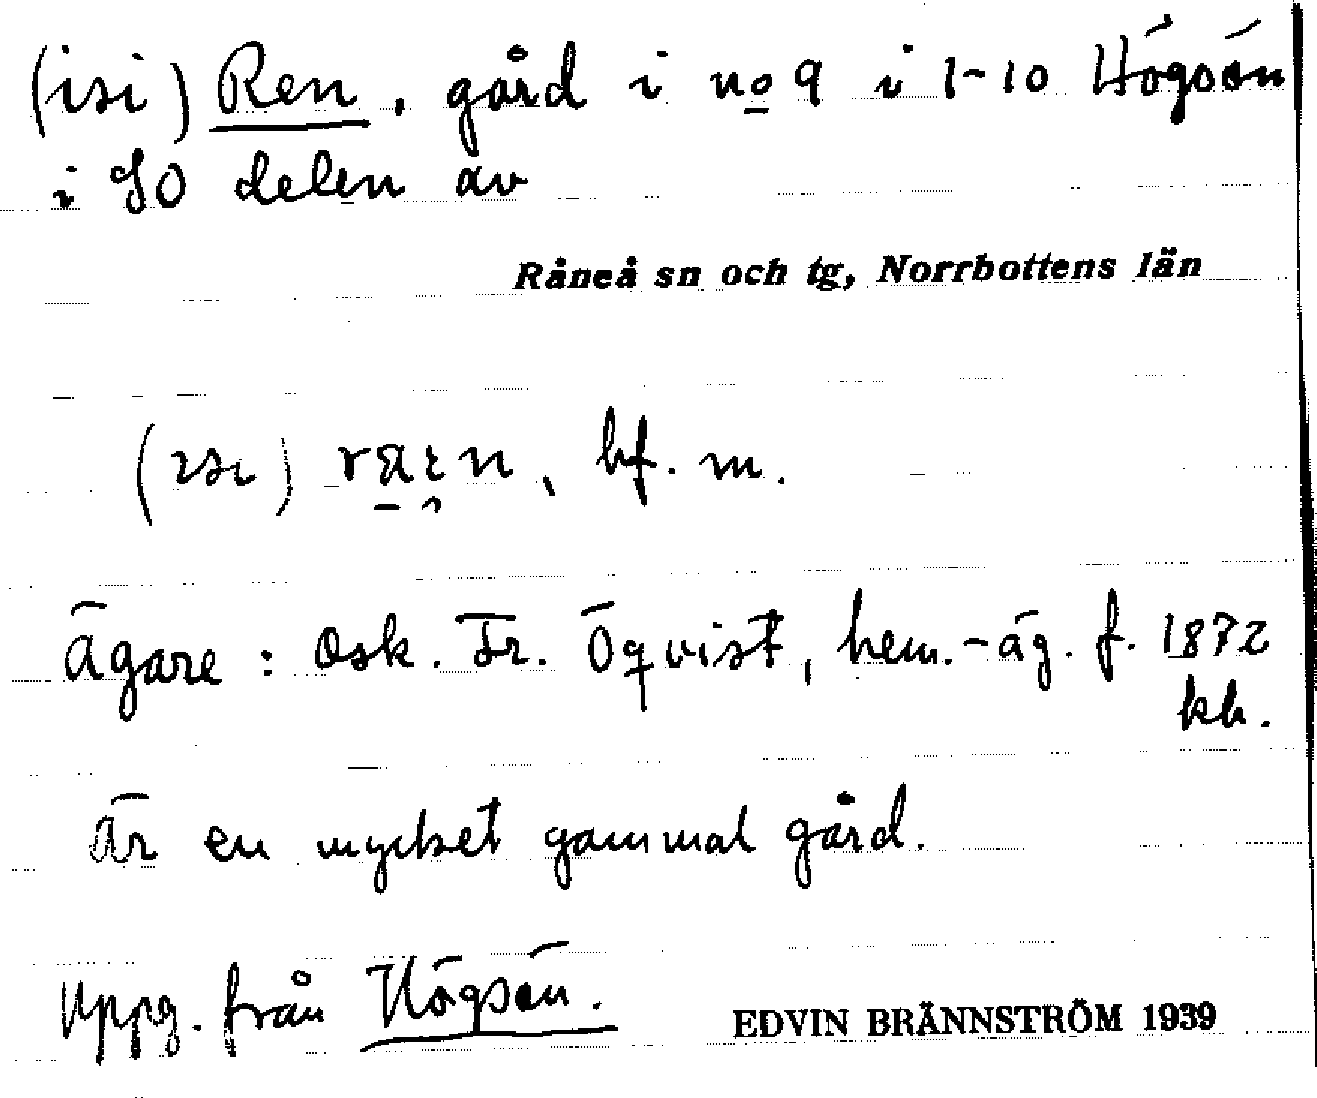 (isi) Ren, gård i no 9 i 1-10 Högsön
i SO delen av
Råneå sn och tg, Norrbottens län
(ısı) , bf. m.
Ägare: Osk. Fr. Öqvist, hem.-äg. f. 1872
kb.
Är en mycket gammal gård.
Uppg. från Högsön.
EDVIN BRÄNNSTRÖM 1939